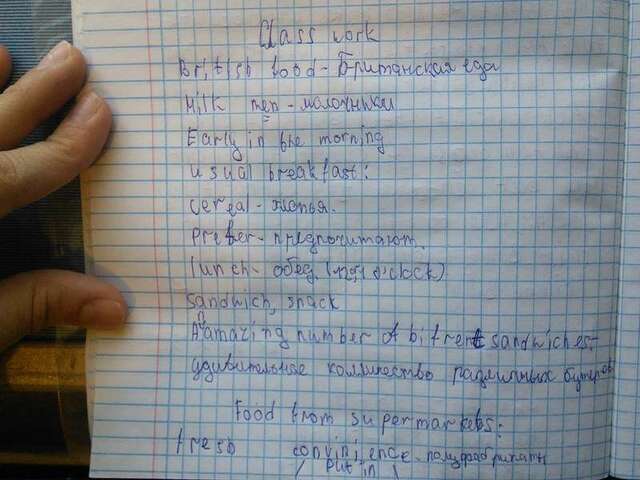 Class work
British food - Британская еда
Milk men - молочники
Early in the morning
usual breakfast:
cereal - хлопья.
Prefer - предпочитают.
lunch - обед (12,1 o'clock)
Sandwich, snack
Aamazing number of bifrent sandwiches -
удивительное колличество различных бутербр
Food from supermarkets:
fresh convinience - полуфабрикаты
put in